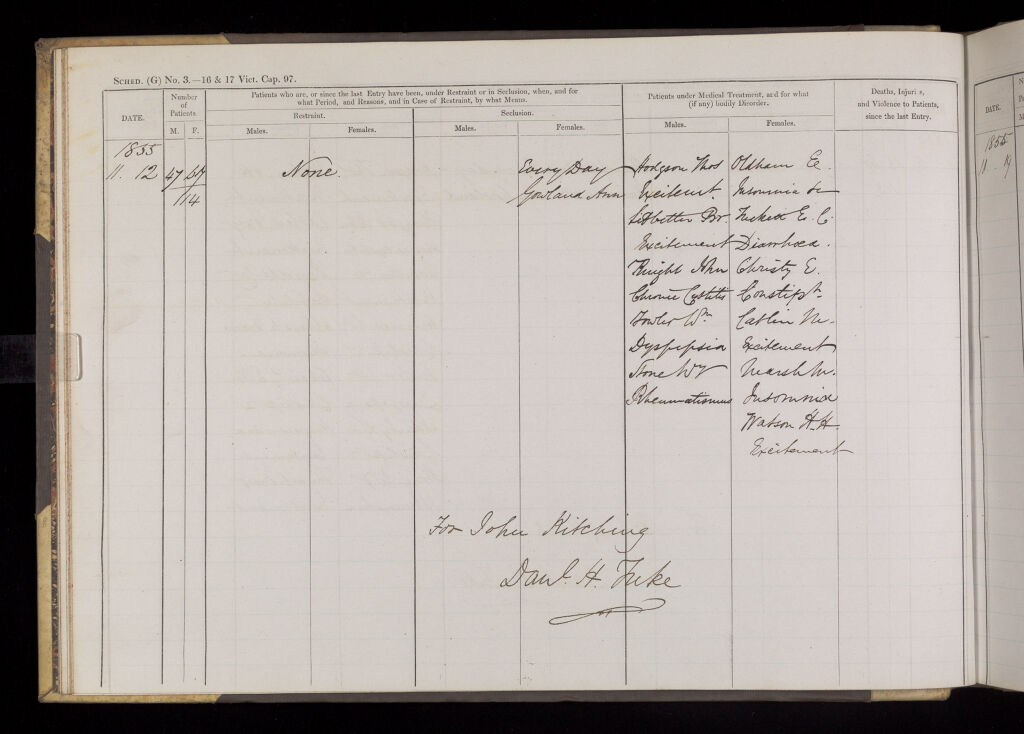 SCHED. (G) No. 3.—16 & 17 Vict. Cap. 97.
DATE.
Number of Patients.
M. F.
Patients who are, or since the last Entry have been, under Restraint or in Seclusion, when, and for
what Period, and Reasons, and in Case of Restraint, by what Means.
Restraint.
Males. Females.
Seclusion.
Males. Females.
Patients under Medical Treatment, and for what
(if any) bodily Disorder.
Males. Females.
Deaths, Injuries,
and Violence to Patients,
since the last Entry.
1855
11. 12 47 67 None. Every Day Hodgson Thos Oldham E.
114 Gowland Ann Excitemt. Insomnia &c
Br. Tuckett E. C.
Excitement Diarrhoea.
Knight John Christy E.
Chronic Cystitis Constipn.
Fowler Wm Catlin M.
Dyspepsia Excitement
Stone Wm Marsh M.
Rheumatismus Insomnia
Watson H. H.
Excitement
For John Kitching
Danl. H. Tuke
DATE.
1855
11.